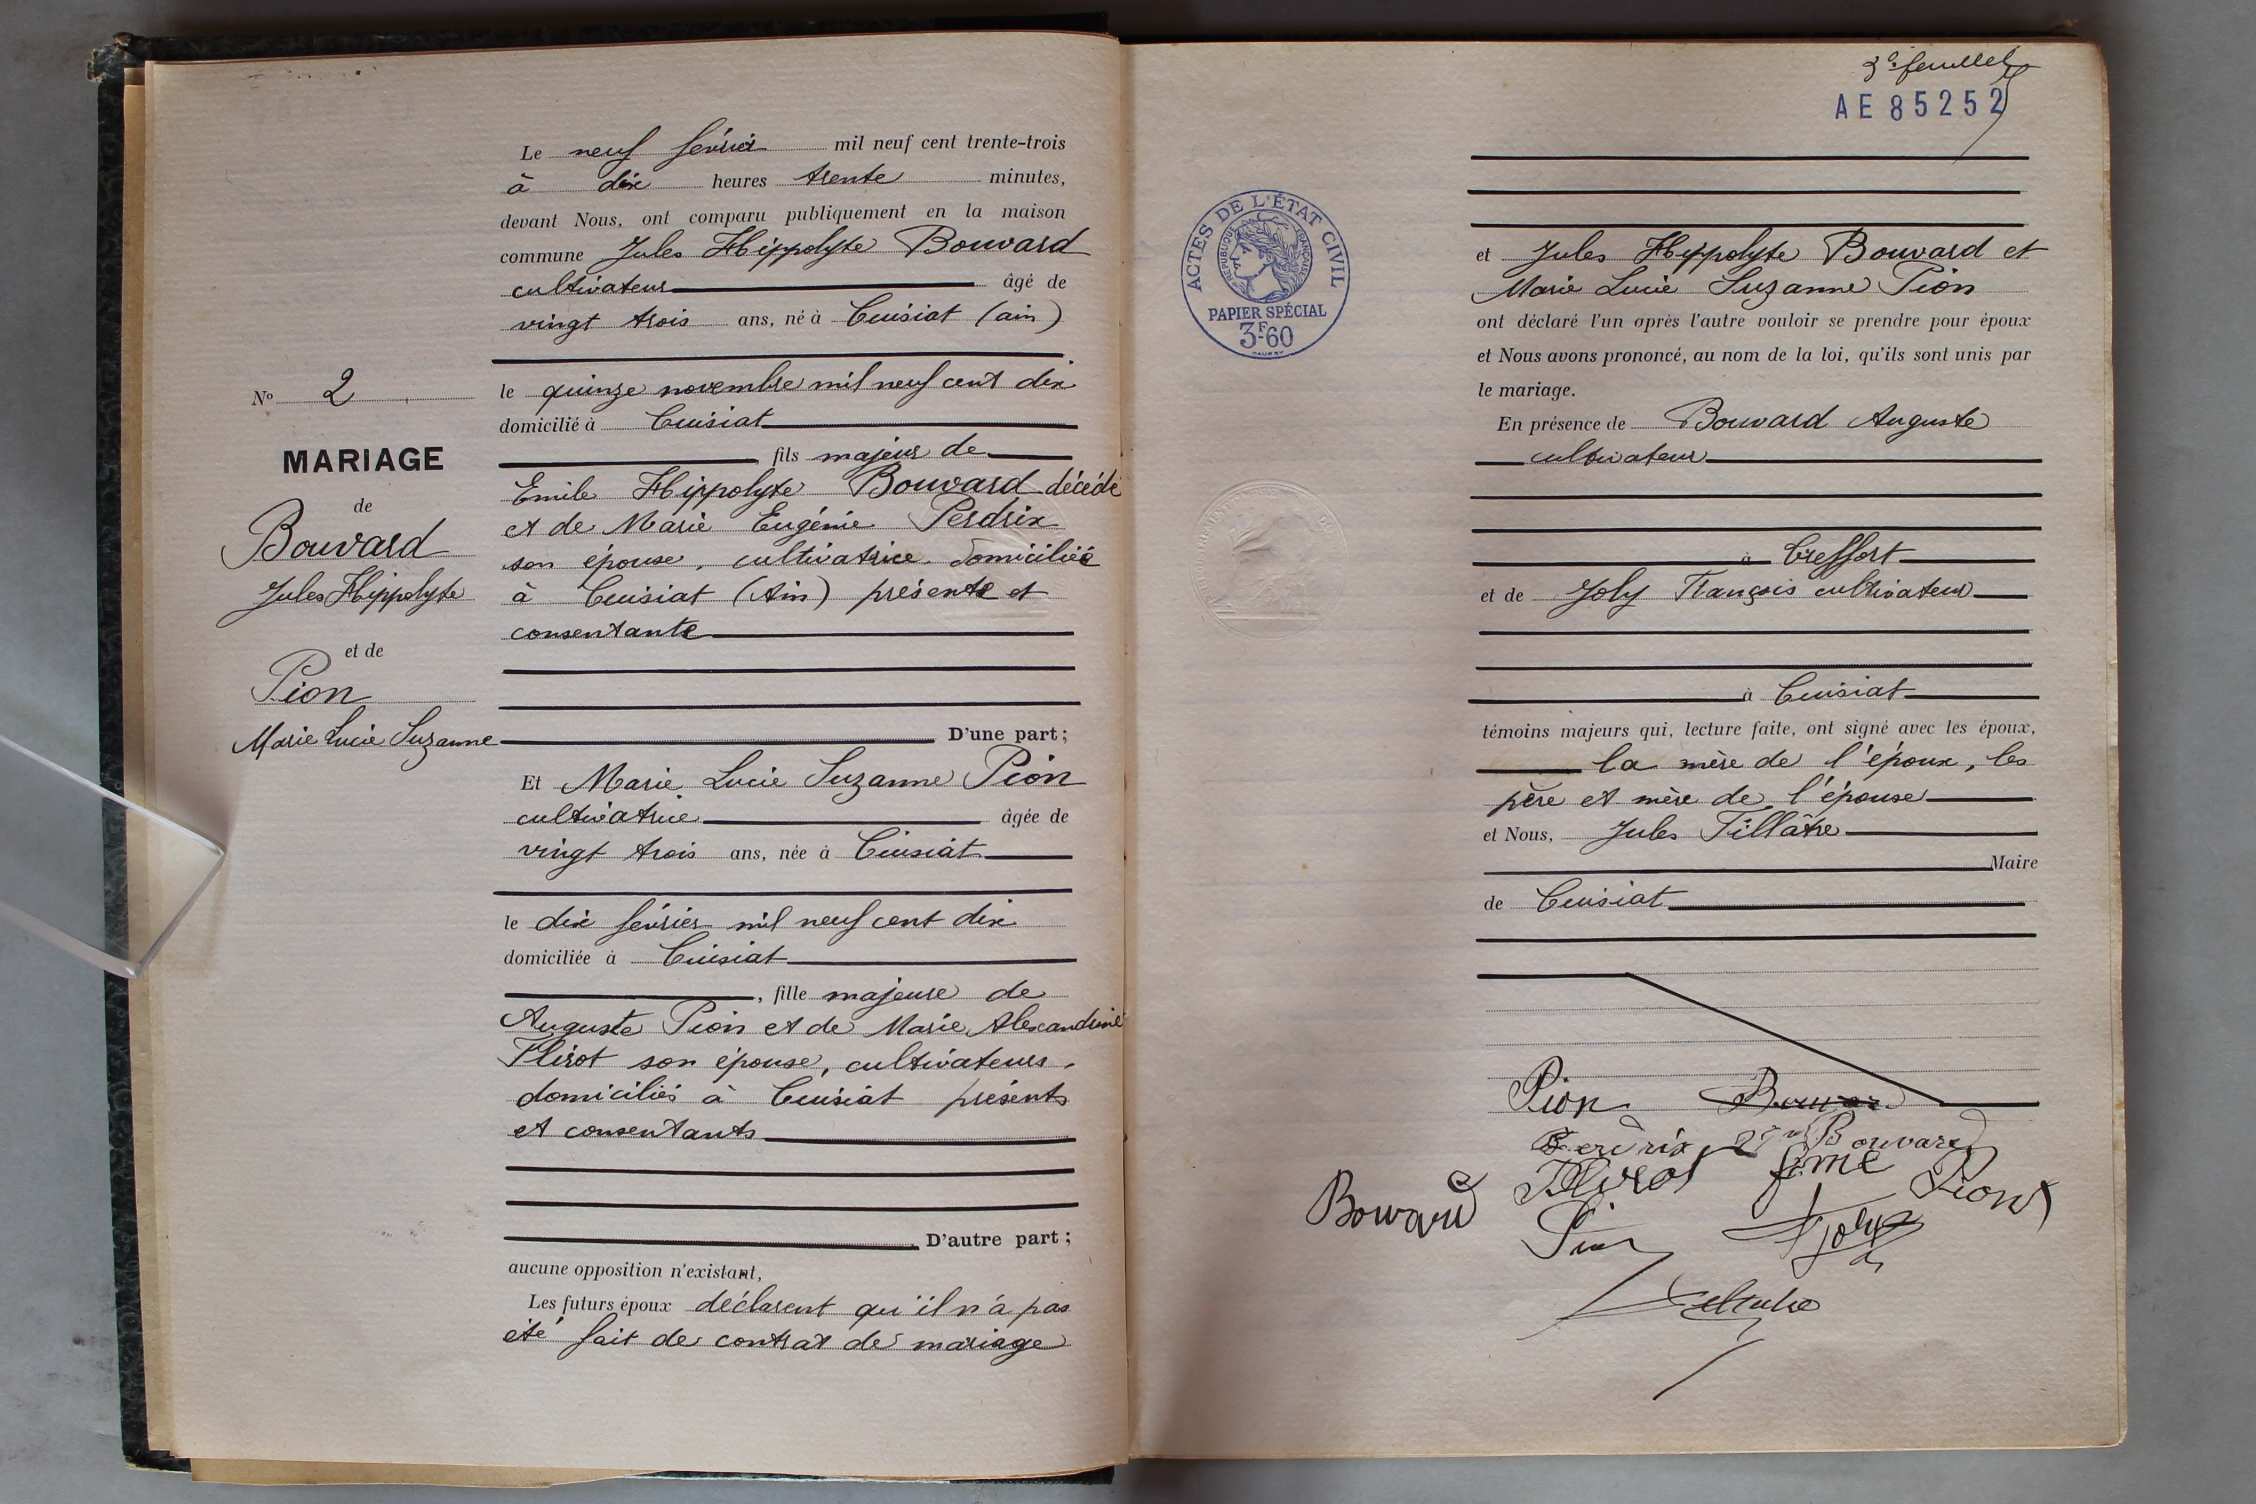 Le neuf février mil neuf cent trente-trois
à dix heures trente minutes,
devant Nous, ont comparu publiquement en la maison
commune Jules Hippolyte Bouvard
cultivateur âgé de
vingt trois ans, né à Cuisiat (ain)
le quinze novembre mil neuf cent dix
domicilié à Cuisiat
fils majeur de
Emile Hippolyte Bouvard décédé
et de Marie Eugénie Perdrix
son épouse, cultivatrice domiciliée
à Cuisiat (Ain) présente et
consentante
D'une part;
Et Marie Lucie Suzanne Pion
cultivatrice âgée de
vingt trois ans, née à Cuisiat
le dix février mil neuf cent dix
domiciliée à Cuisiat
, fille majeure de
Auguste Pion et de Marie Alexandrine
Flirot son épouse, cultivateurs,
domiciliés à Cuisiat présents
et consentants
D'autre part;
aucune opposition n'existant,
Les futurs époux déclarent qu'il n'a pas
été fait de contrat de mariage
No 2
MARIAGE
de
Bouvard
Jules Hippolyte
et de
Pion
Marie Lucie Suzanne
3e feuillet
AE 85252
ACTES DE L'ÉTAT CIVIL
RÉPUBLIQUE FRANÇAISE
PAPIER SPÉCIAL
3F60
et Jules Hippolyte Bouvard et
Marie Lucie Suzanne Pion
ont déclaré l'un après l'autre vouloir se prendre pour époux
et Nous avons prononcé, au nom de la loi, qu'ils sont unis par
le mariage.
En présence de Bouvard Auguste
cultivateur
à Treffort
et de Joly François cultivateur
à Cuisiat
témoins majeurs qui, lecture faite, ont signé avec les époux,
la mère de l'époux, les
père et mère de l'épouse
et Nous, Jules Tillâtre
Maire
de Cuisiat
Pion Bouvar
Perdrix Bouvard
Flirot fme Pion
Bouvard
Pion Joly